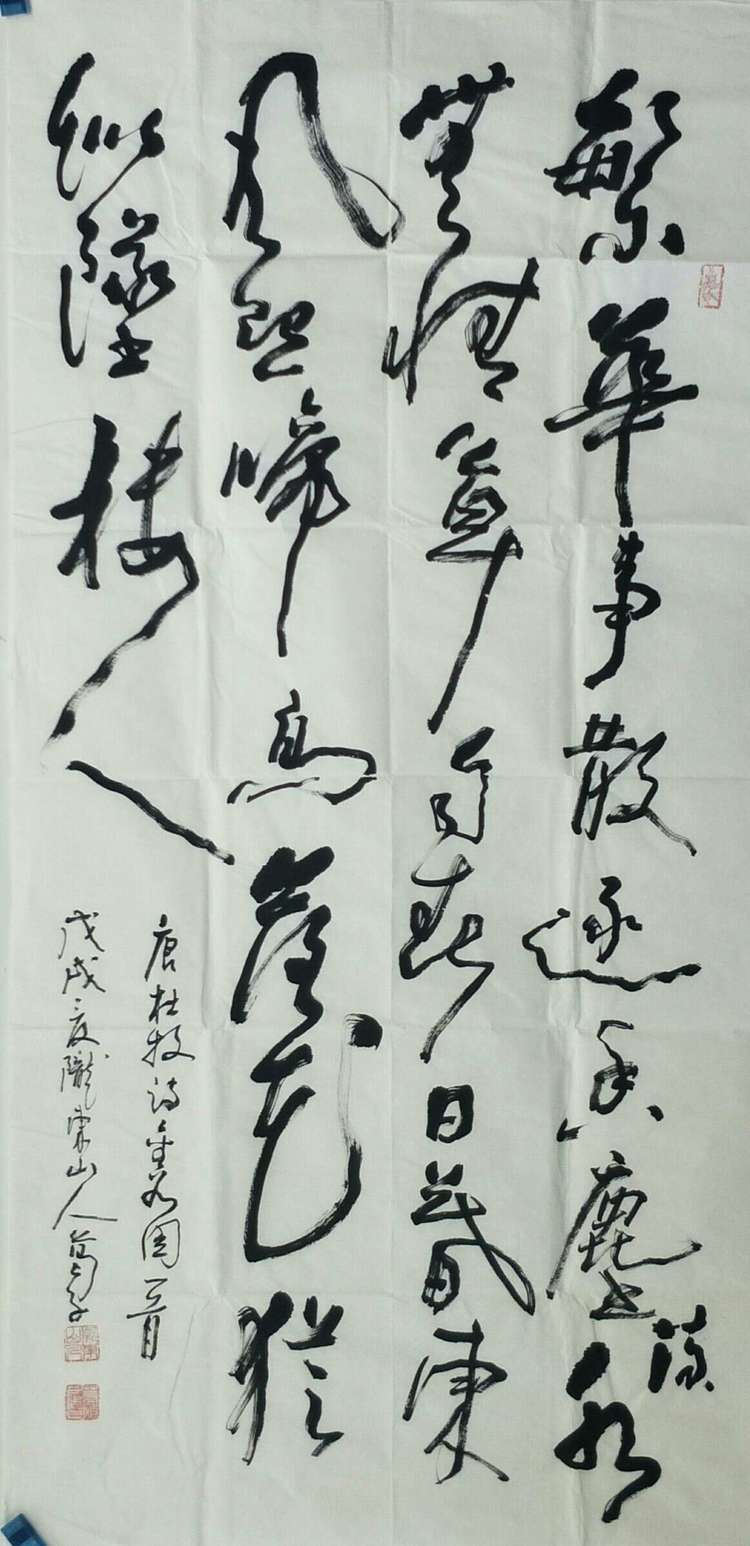 繁華事散逐香塵流水
無情草自春日暮東
風怨啼鳥落花猶
似墜樓人
唐杜牧詩金谷園一首
戊戌夏隴東山人葛